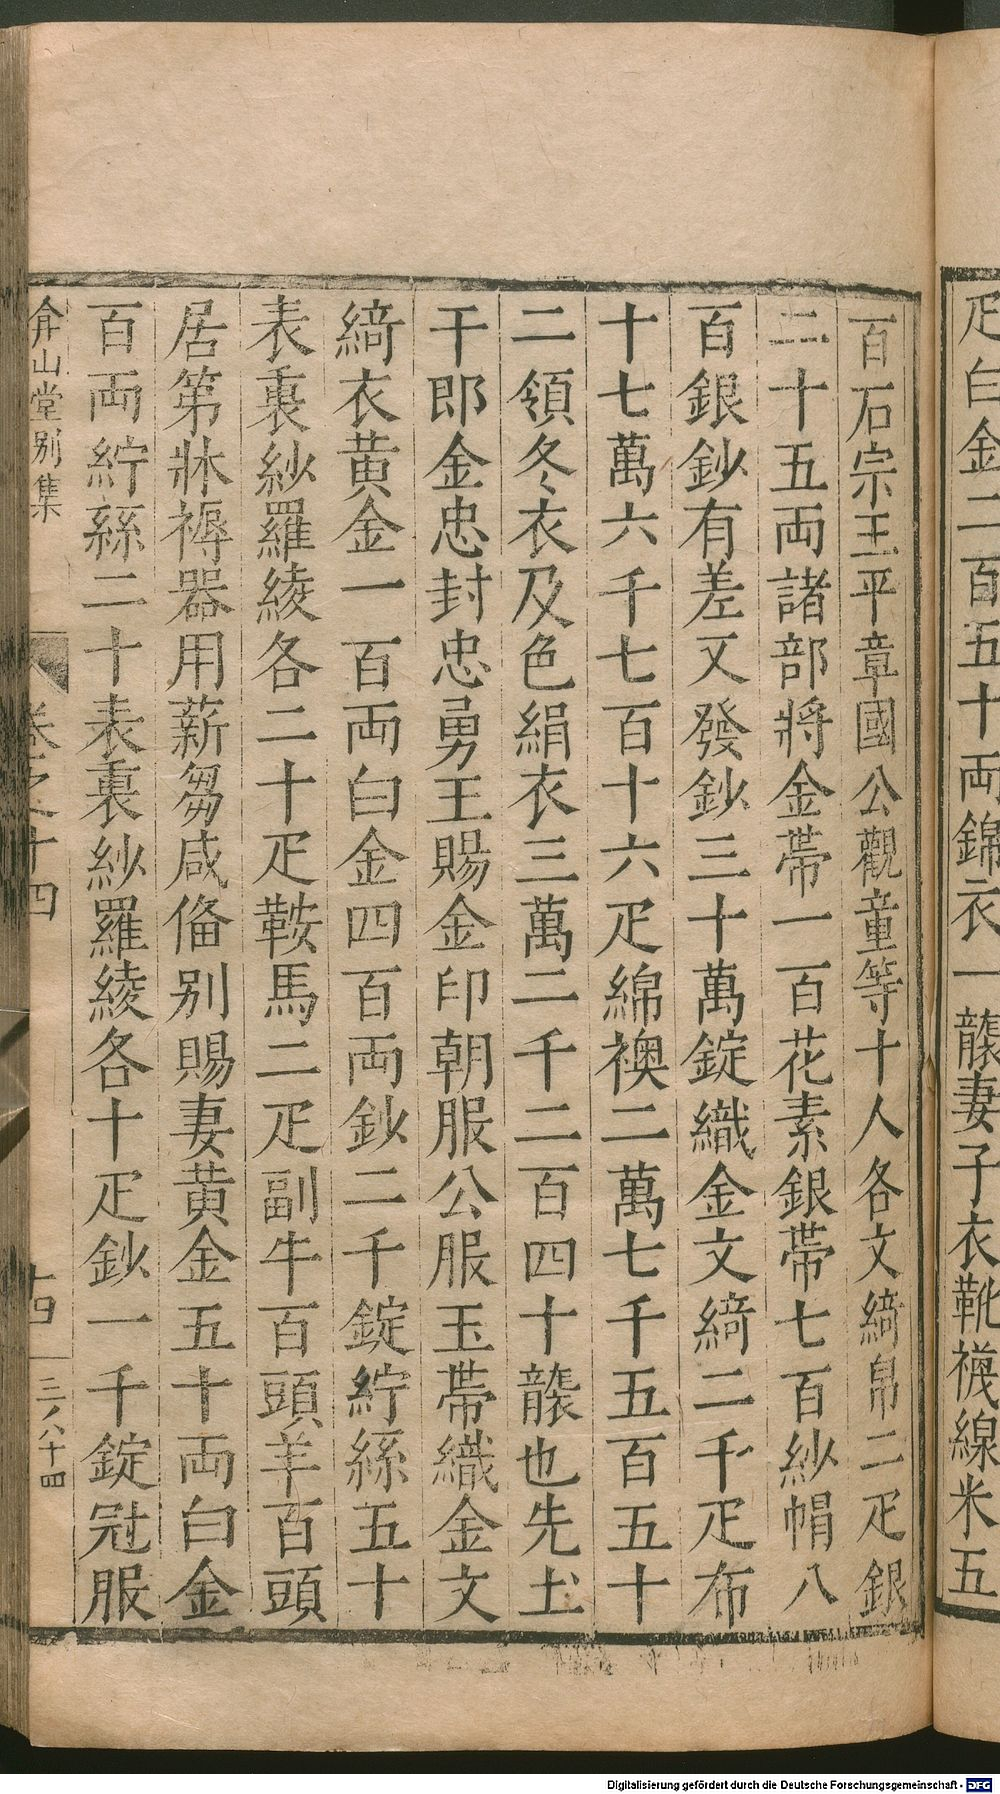 疋白金二百五十両錦衣一襲妻子衣靴襪線米五
百石宗王平章國公觀童等十人各文綺帛二疋銀
二十五両諸部將金帶一百花素銀帶七百紗帽八
百銀鈔有差又發鈔三十萬錠織金文綺二千疋布
十七萬六千七百十六疋綿襖二萬七千五百五十
二領冬衣及色絹衣三萬二千二百四十襲也先土
干即金忠封忠勇王賜金印朝服公服玉帶織金文
綺衣黄金一百両白金四百両鈔二千錠紵絲五十
表裏紗羅綾各二十疋鞍馬二疋副牛百頭羊百頭
居第牀褥器用薪芻咸俻别賜妻黄金五十両白金
百両紵絲二十表裏紗羅綾各十疋鈔一千錠冠服
弇山堂别集
卷之十四
十四
三八十四
Digitalisierung gefördert durch die Deutsche Forschungsgemeinschaft - DFG